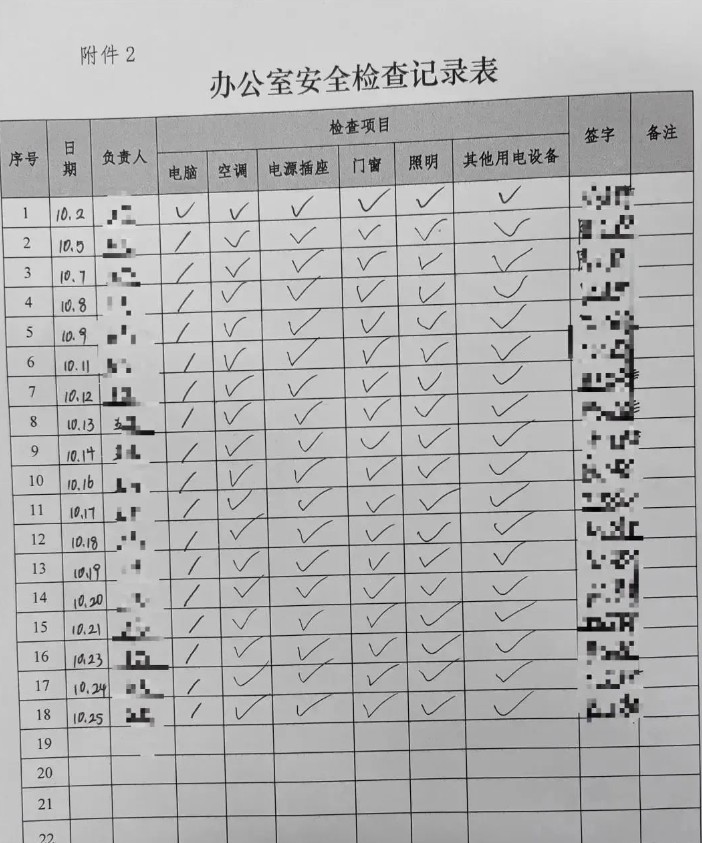 附件2
办公室安全检查记录表
序号 日期 负责人 检查项目 签字 备注
电脑 空调 电源插座 门窗 照明 其他用电设备
1 10.2 ✓ ✓ ✓ ✓ ✓ ✓
2 10.5 / ✓ ✓ ✓ ✓ ✓
3 10.7 / ✓ ✓ ✓ ✓ ✓
4 10.8 / ✓ ✓ ✓ ✓ ✓
5 10.9 / ✓ ✓ ✓ ✓ ✓
6 10.11 / ✓ ✓ ✓ ✓ ✓
7 10.12 / ✓ ✓ ✓ ✓ ✓
8 10.13 / ✓ ✓ ✓ ✓ ✓
9 10.14 / ✓ ✓ ✓ ✓ ✓
10 10.16 / ✓ ✓ ✓ ✓ ✓
11 10.17 / ✓ ✓ ✓ ✓ ✓
12 10.18 / ✓ ✓ ✓ ✓ ✓
13 10.19 / ✓ ✓ ✓ ✓ ✓
14 10.20 / ✓ ✓ ✓ ✓ ✓
15 10.21 / ✓ ✓ ✓ ✓ ✓
16 10.23 / ✓ ✓ ✓ ✓ ✓
17 10.24 / ✓ ✓ ✓ ✓ ✓
18 10.25 / ✓ ✓ ✓ ✓ ✓
19
20
21
22